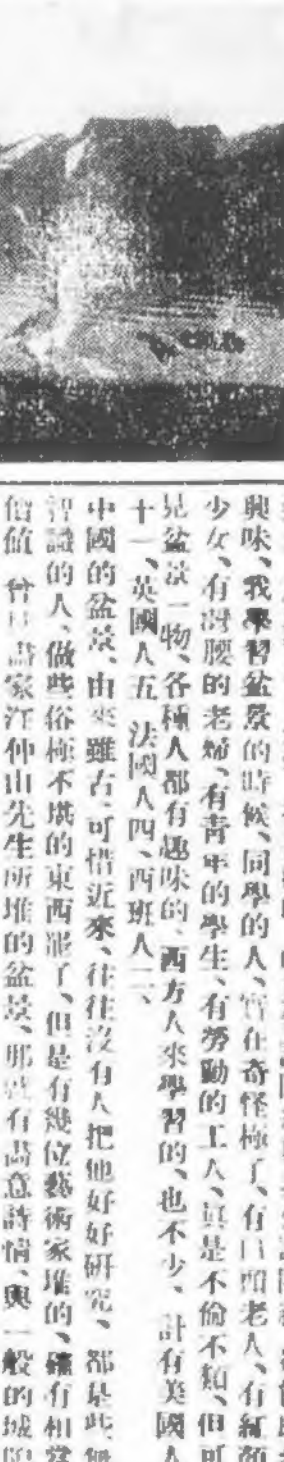 興味、我學習盆景的時候、同學的人、實在奇怪極了、有白頭老人、有紅顏
少女、有彎腰的老婦、有青年的學生、有勞動的工人、眞是不倫不類、但可
見盆景一物、各種人都有趣味的、西方人來學習的、也不少、計有美國人
十一、英國人五、法國人四、西班人二、
中國的盆景、由來雖古、可惜近來、往往沒有人把他好好研究、都是些無
智識的人、做些俗極不堪的東西罷了、但是有幾位藝術家堆的、確有相當
價值、曾見畫家汪仲山先生所堆的盆景、那就有畫意詩情、與一般的城